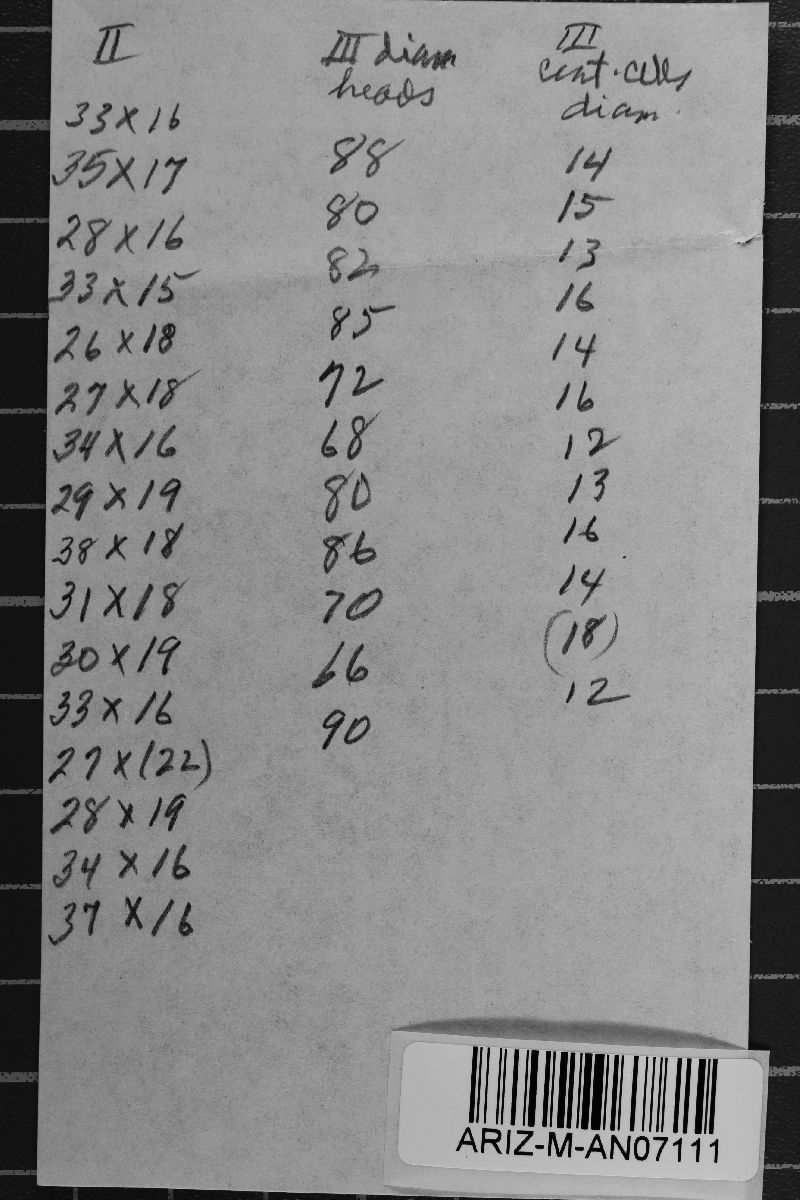 II
33 X 16
35 X 17
28 X 16
33 X 15
26 X 18
27 X 18
34 X 16
29 X 19
38 X 18
31 X 18
30 X 19
33 X 16
27 X (22)
28 X 19
34 X 16
37 X 16
III diam
heads
88
80
82
85
72
68
80
86
70
66
90
III
cent. cells
diam.
14
15
13
16
14
16
12
13
16
14
(18)
12
ARIZ-M-AN07111